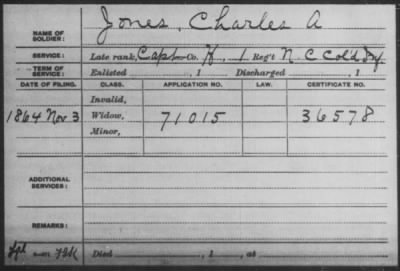 NAME OF SOLDIER: Jones, Charles A
SERVICE: Late rank, Capt Co. K, 1 Reg't N C Col'd Inf.
TERM OF SERVICE: Enlisted , 1 Discharged , 1
DATE OF FILING. CLASS. APPLICATION NO. LAW. CERTIFICATE NO.
Invalid,
1864 Nov 3 Widow, 71015 36578
Minor,
ADDITIONAL SERVICES:
REMARKS:
Died , 1 , at